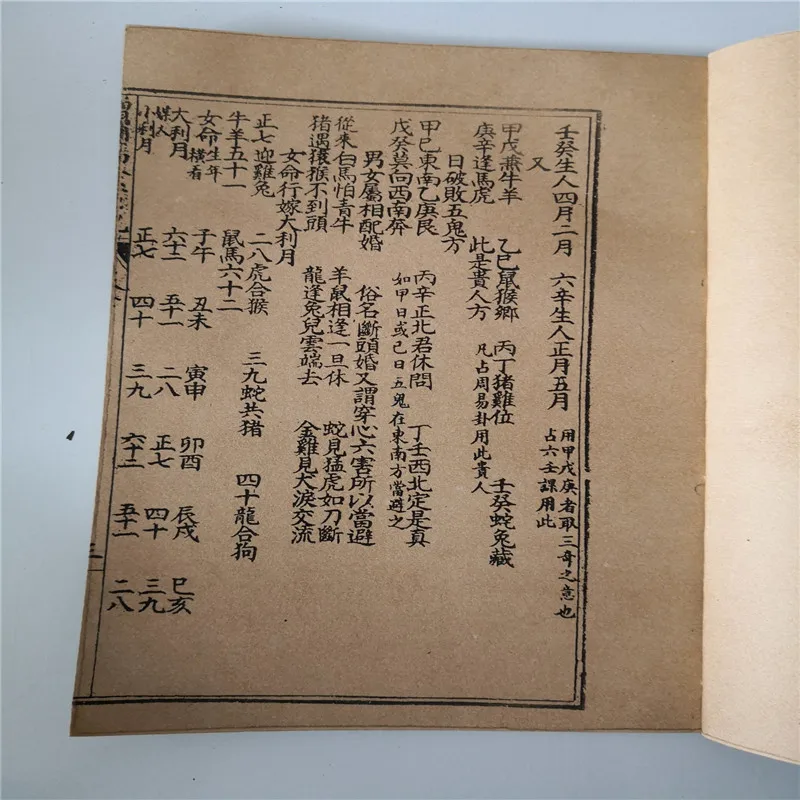 壬癸生人四月二月 六辛生人正月五月 用甲戊庚者取三奇之意也
占六壬課用此
又
甲戊兼牛羊 乙巳鼠猴鄉 丙丁猪雞位 壬癸蛇兔藏
庚辛逢馬虎 此是貴人方 凡占周易卦用此貴人
日破敗五鬼方
甲巳東南乙庚艮 丙辛正北君休問 丁壬西北定是真
戊癸莫向西南奔 如甲日或己日五鬼在東南方當避之
男女屬相配婚 俗名斷頭婚又謂穿心六害所以當避
從來白馬怕青牛 羊鼠相逢一旦休 蛇見猛虎如刀斷
猪遇猿猴不到頭 龍逢兔兒雲端去 金雞見犬淚交流
女命行嫁大利月
正七迎雞兔 二八虎合猴 三九蛇共猪 四十龍合狗
牛羊五十一 鼠馬六十二
女命生年橫看 子午 丑未 寅申 卯酉 辰戌 巳亥
大利月 六十二 五十一 二八 正七 四十 三九
媒人
小利月 正七 四十 三九 六十二 五十一 二八
三